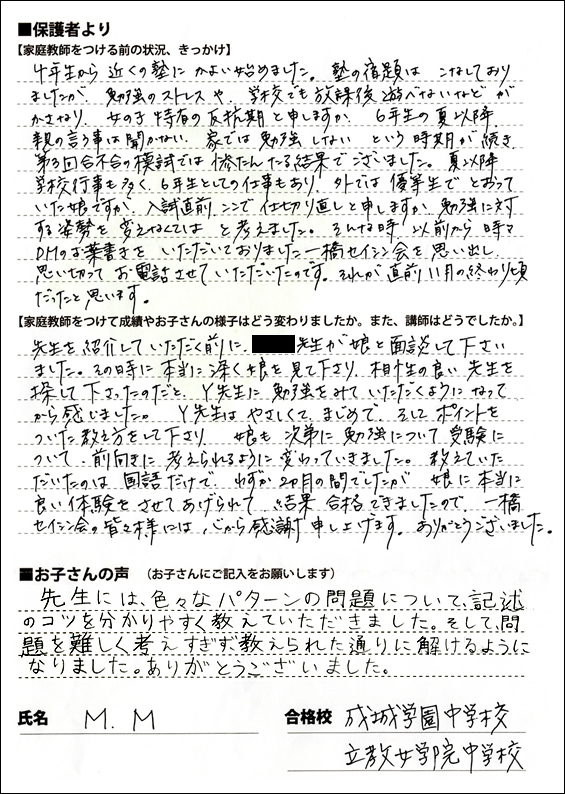 ■保護者より
【家庭教師をつける前の状況、きっかけ】
4年生から 近くの塾に かよい始めました。塾の宿題は こなしており
ましたが、勉強のストレスや、学校でも放課後 遊べないなど が
かさなり、女の子特有の反抗期と申しますか、6年生の夏以降
親の言う事は聞かない、家では勉強しない という 時期が続き
第3回合不合の模試では 惨たんたる結果でございました。夏以降
学校行事も多く、6年生としての仕事もあり、外では 優等生で とおって
いた娘ですが、入試直前、ここで 仕切り直しと申しますか、勉強に対
する姿勢を 変えなくては と考えました。そんな時、以前から 時々
DMのお葉書きを いただいておりました 一橋セイシン会を 思い出し、
思い切って お電話させていただいたのです。それが直前11月の終わり頃
だったと思います。
【家庭教師をつけて成績やお子さんの様子はどう変わりましたか。また、講師はどうでしたか。】
先生を紹介していただく前に、先生が娘と面談して下さい
ました。その時に 本当に 深く娘を 見て下さり、相性の良い 先生を
探して 下さったのだと、Y先生に 勉強をみていただくように なって
から感じました。 Y先生は やさしくて、まじめで、そして ポイントを
ついた教え方をして下さり、娘も 次第に 勉強について 受験に
ついて、前向きに 考えられるように 変わっていきました。教えていた
だいたのは 国語だけで、わずか 2ヶ月の間でしたが、娘に本当に
良い体験を させてあげられて、結果 合格できましたので、一橋
セイシン会の皆々様には 心から感謝 申し上げます。ありがとうございました。
■お子さんの声 （お子さんにご記入をお願いします）
先生には、色々なパターンの問題について、記述
のコツを分かりやすく教えていただきました。そして、問
題を難しく考えすぎず教えられた通りに解けるように
なりました。ありがとうございました。
氏名 M. M 合格校 成城学園中学校
立教女学院中学校